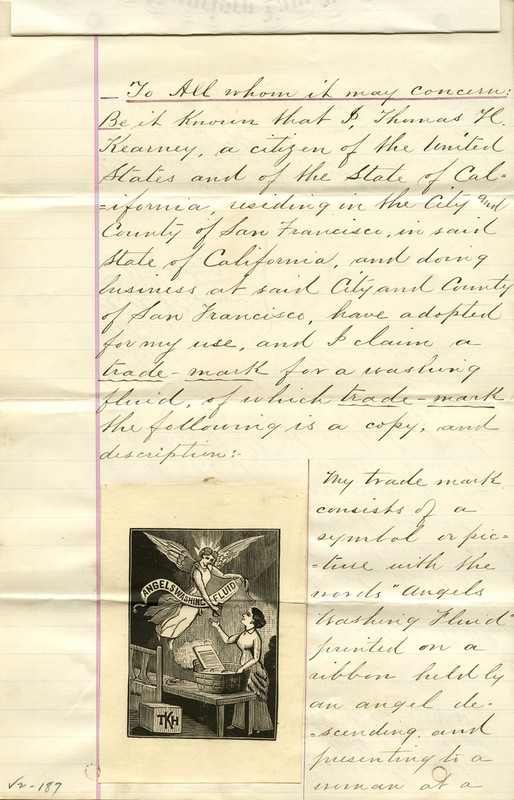 To All whom it may concern:
Be it Known that I, Thomas H.
Kearney, a citizen of the United
States and of the State of Cal=
=ifornia, residing in the City and
County of San Francisco, in said
State of California, and doing
business at said City and County
of San Francisco, have adopted
for my use, and I claim a
trade-mark for a washing
fluid, of which trade-mark
the following is a copy, and
description:-
My trade mark
consists of a
symbol or pic=
=ture with the
words "Angels
Washing Fluid"
printed on a
ribbon held by
an angel de-
-scending and
presenting to a
woman at a
ANGELS WASHING FLUID
TKH